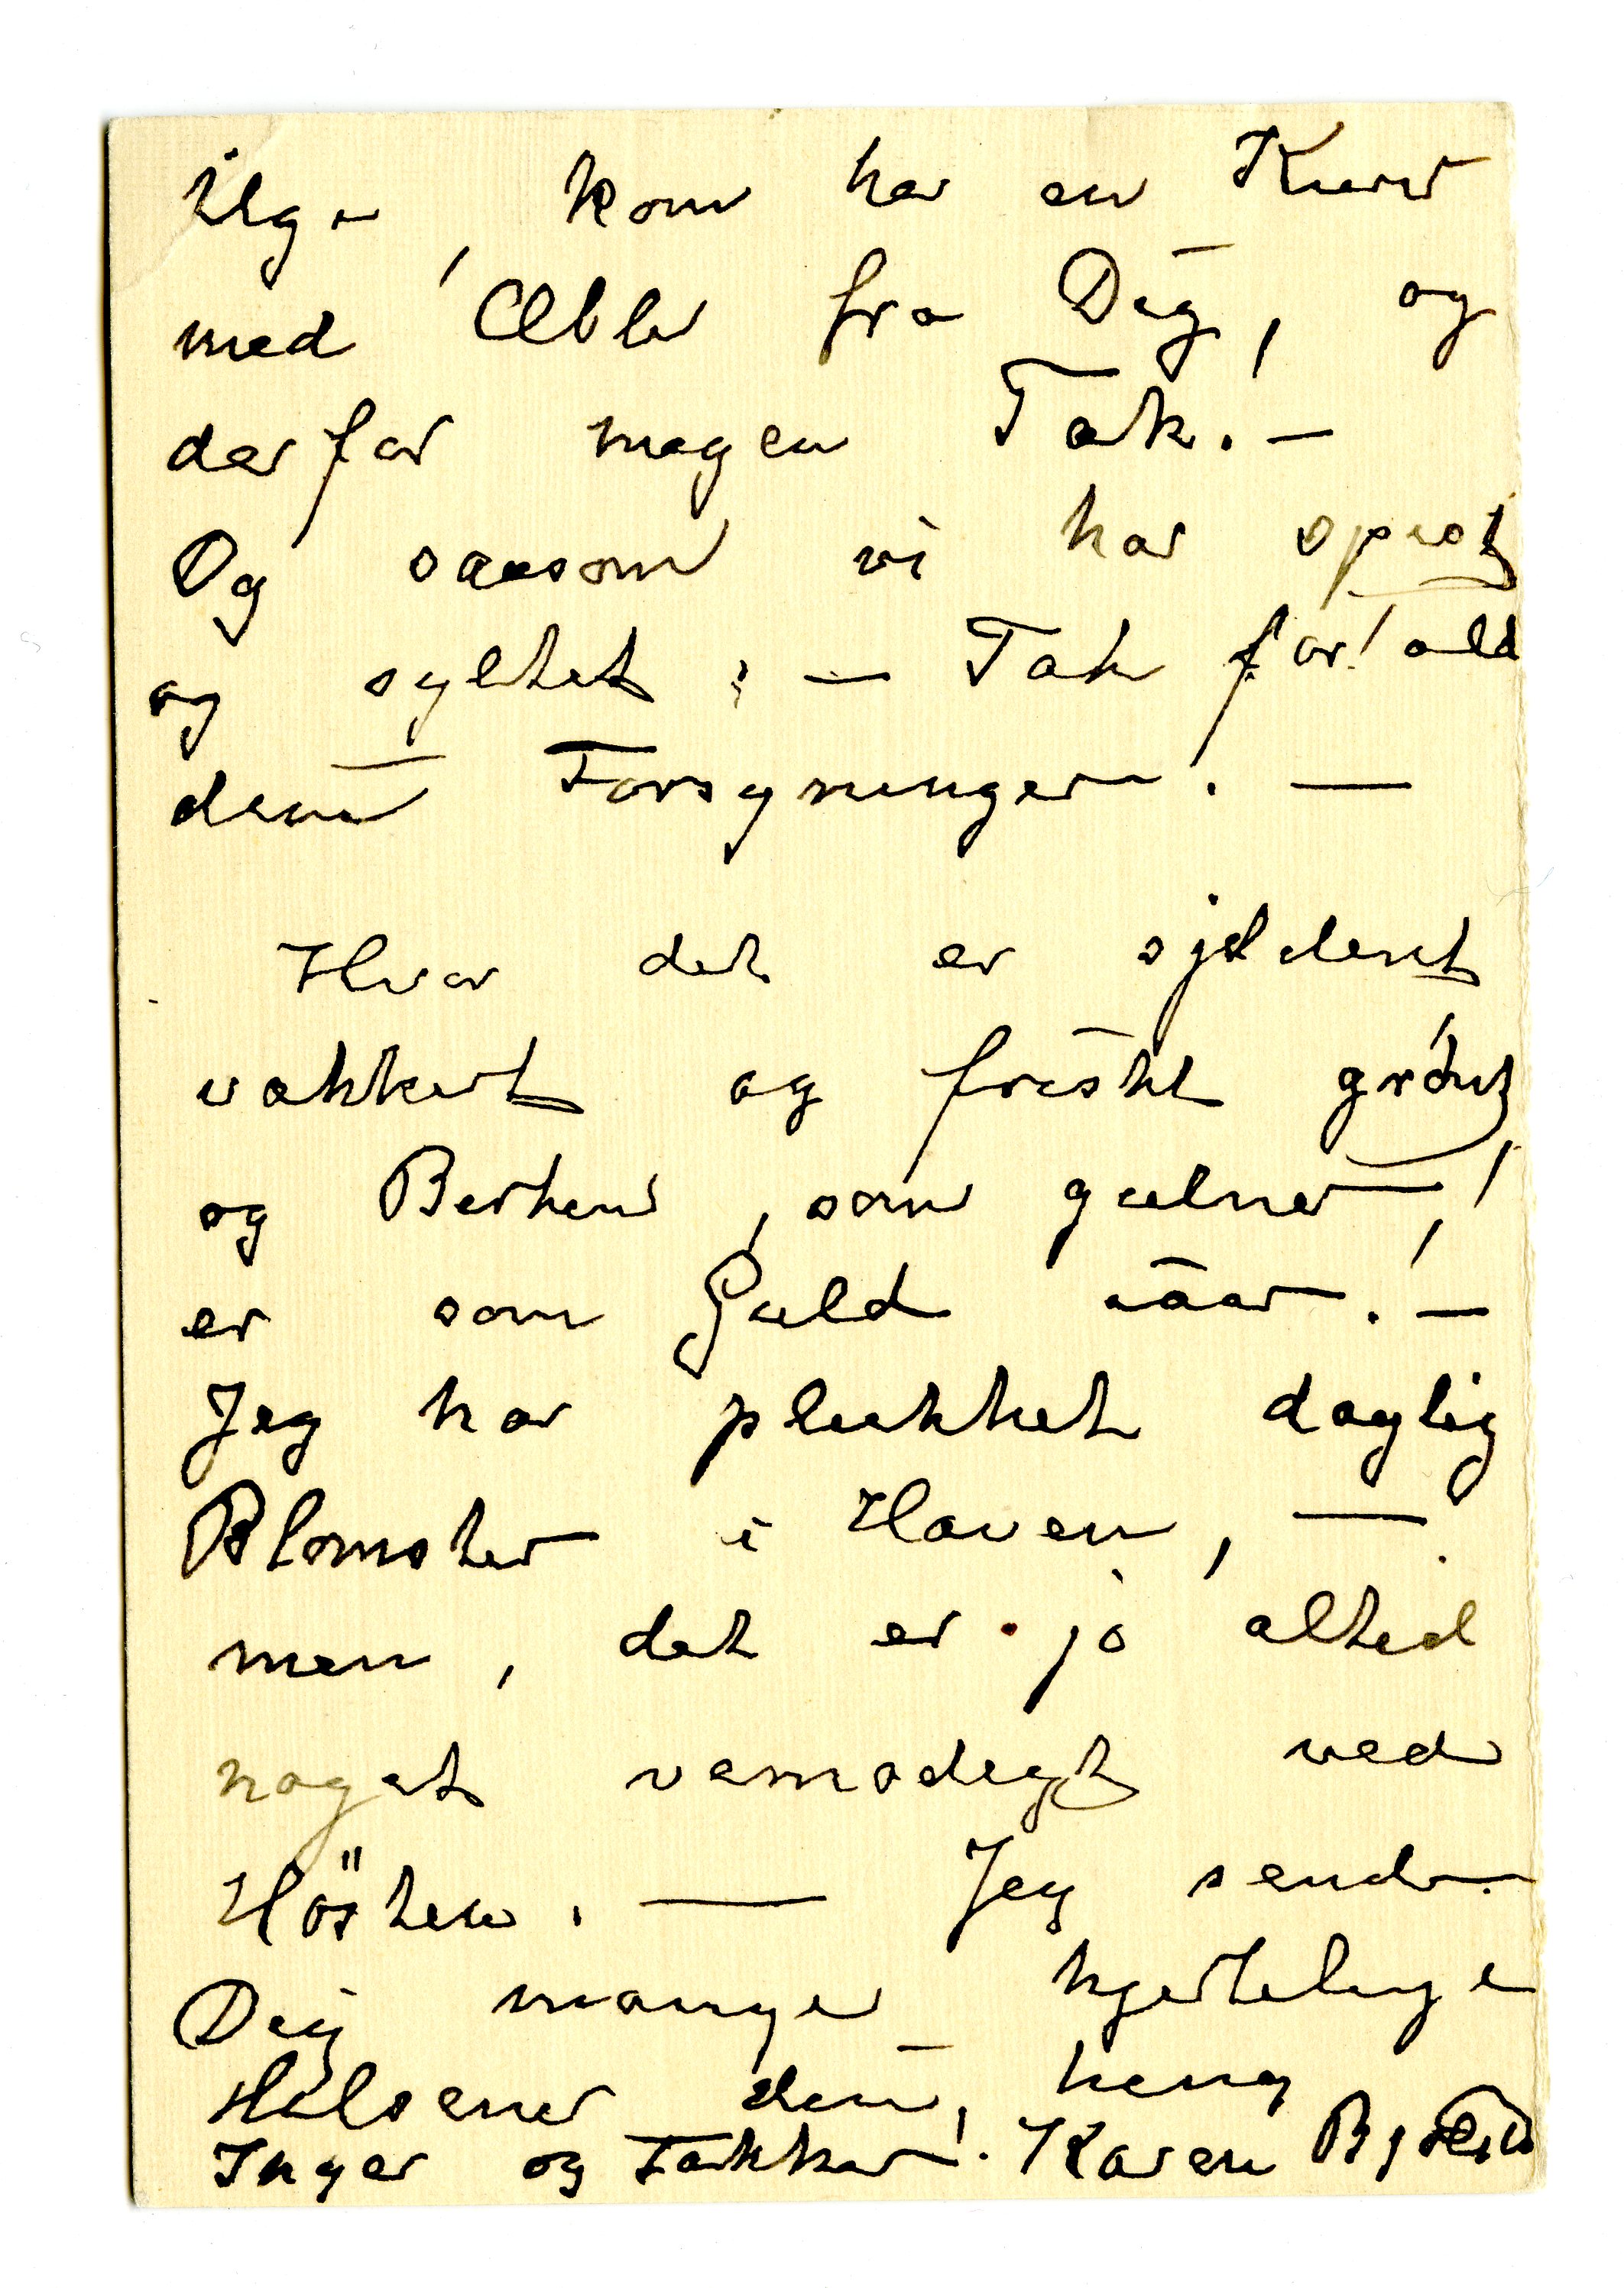 kom her en Kurv
med Æbler fra Dig, og
derfor megen Tak. —
Og saasom vi har spist
og syltet; — Tak for! ald
denne Forsyningen. —
Hvor det er sjeldent
vakkert og friskt grönt,
og Berken, som gulner,
er som Guld især. —
Jeg har plukket daglig
Blomster i Haven, —
men, det er ja altid
noget vemodigt ved
Hösten. — Jeg sender
Dig mange hjertelige
Hilsener din, heng
Inger og Takker! Karen